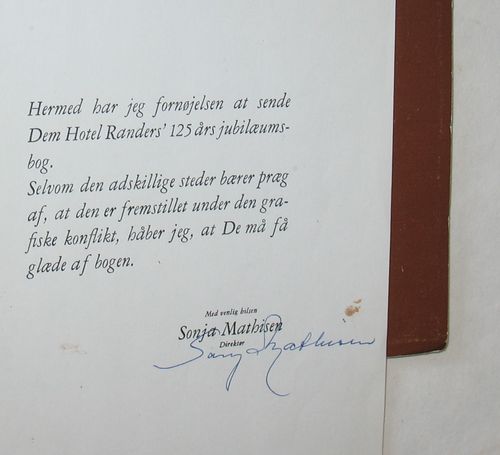 Hermed har jeg fornøjelsen at sende
Dem Hotel Randers' 125 års jubilæums-
bog.
Selvom den adskillige steder bærer præg
af, at den er fremstillet under den gra-
fiske konflikt, håber jeg, at De må få
glæde af bogen.
Med venlig hilsen
Sonja Mathisen
Direktør
Sonj Mathisen